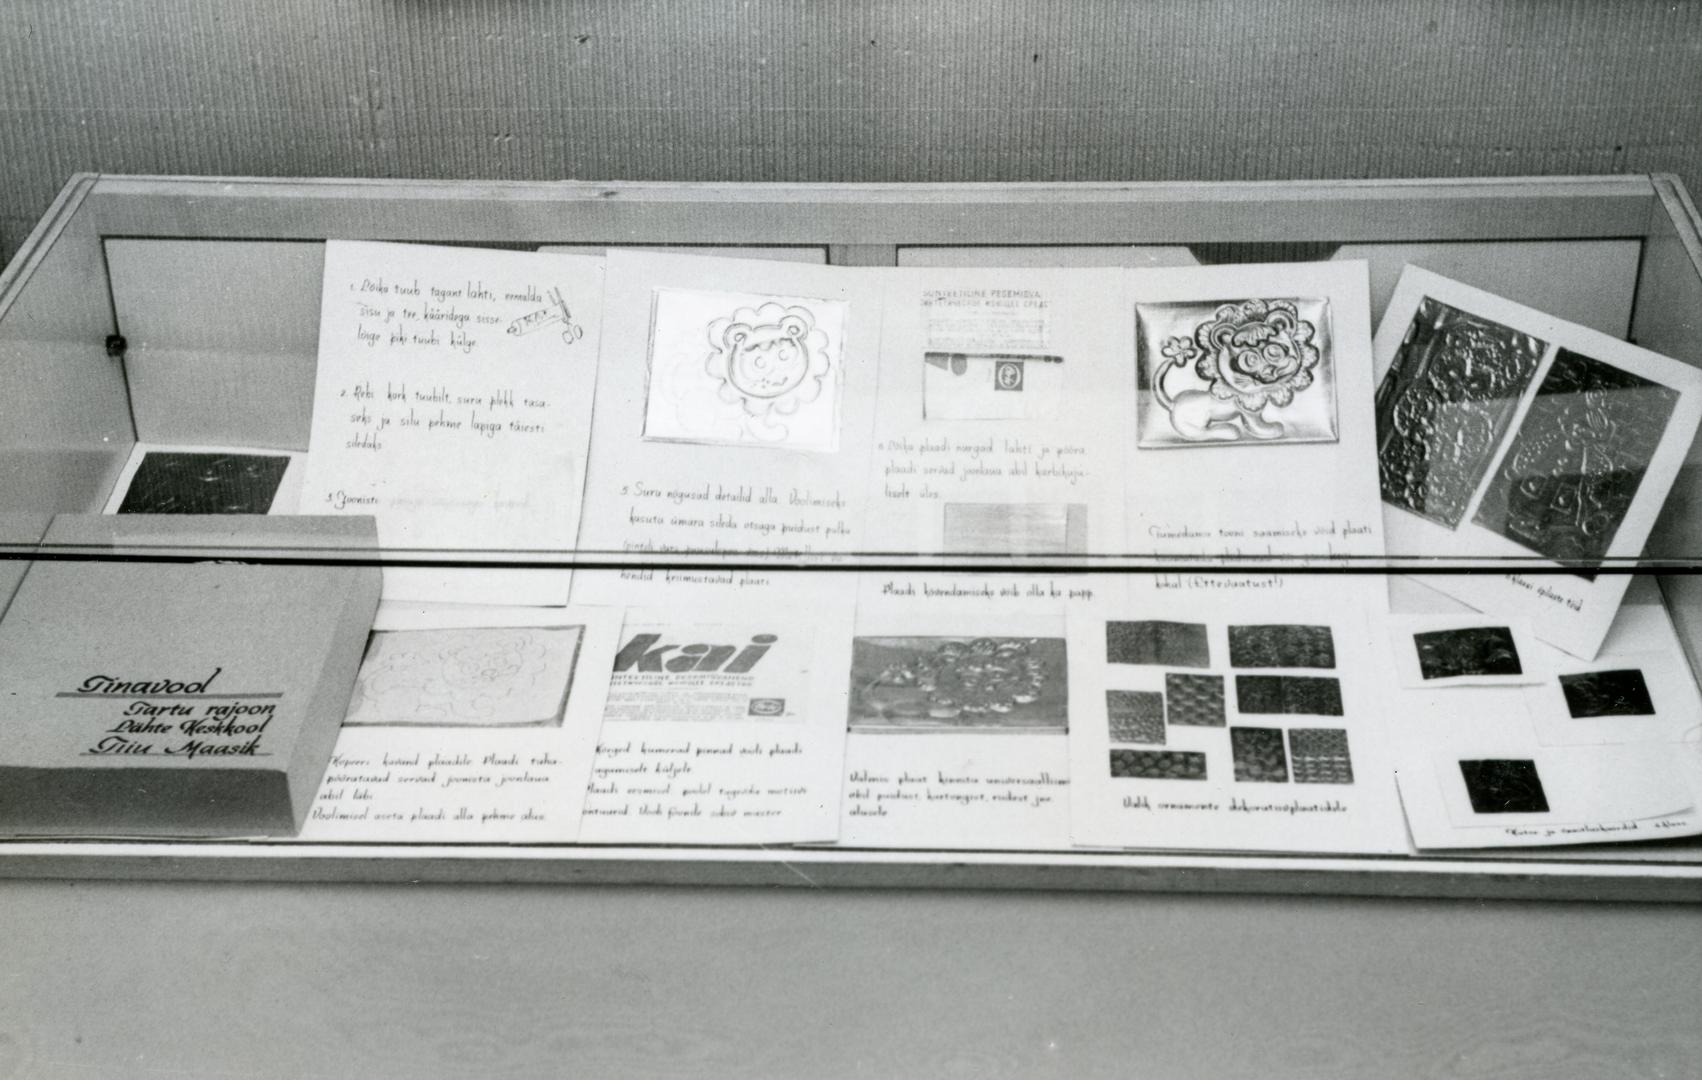 1. Lõika tuub tagant lahti, eemalda
sisu ja tee kääridega sisse-
lõige piki tuubi külge.
2. Rebi kork tuubilt, suru plekk tasa-
seks ja silu pehme lapiga täiesti
siledaks
3. Joonista
5. Suru nõgusad detailid alla. Voolimiseks
kasuta ümara sileda otsaga puidust pulka
hendid kriimustavad plaati.
SÜNTEETILINE PESEMISVA
6. Lõika plaadi nurgad lahti ja pööra
plaadi servad joonlaua abil karbikuju-
liselt üles.
Plaadi kõvendamiseks võib olla ka papp.
Tumedama tooni saamiseks võid plaati
kohal (Ettevaatust!)
klassi õpilaste tööd
Tinavool
Tartu rajoon
Lähte Keskkool
Tiiu Maasik
Kopeeri kavand plaadile. Plaadi taha-
pööratavad servad joonista joonlaua
abil läbi.
Voolimisel aseta plaadi alla pehme alus.
kai
Kõrged kumerad pinnad vooli plaadi
tagumiselt küljelt.
Plaadi eesmisel poolel tugevda motiivi
kontuurid. Vooli foonile sobiv muster
Valmis plaat kinnita universaalliimi
abil puidust, kartongist, riidest jne.
alusele
Valik ornamente dekoratiivplaatidele
Kutse ja õnnitluskaardid klass